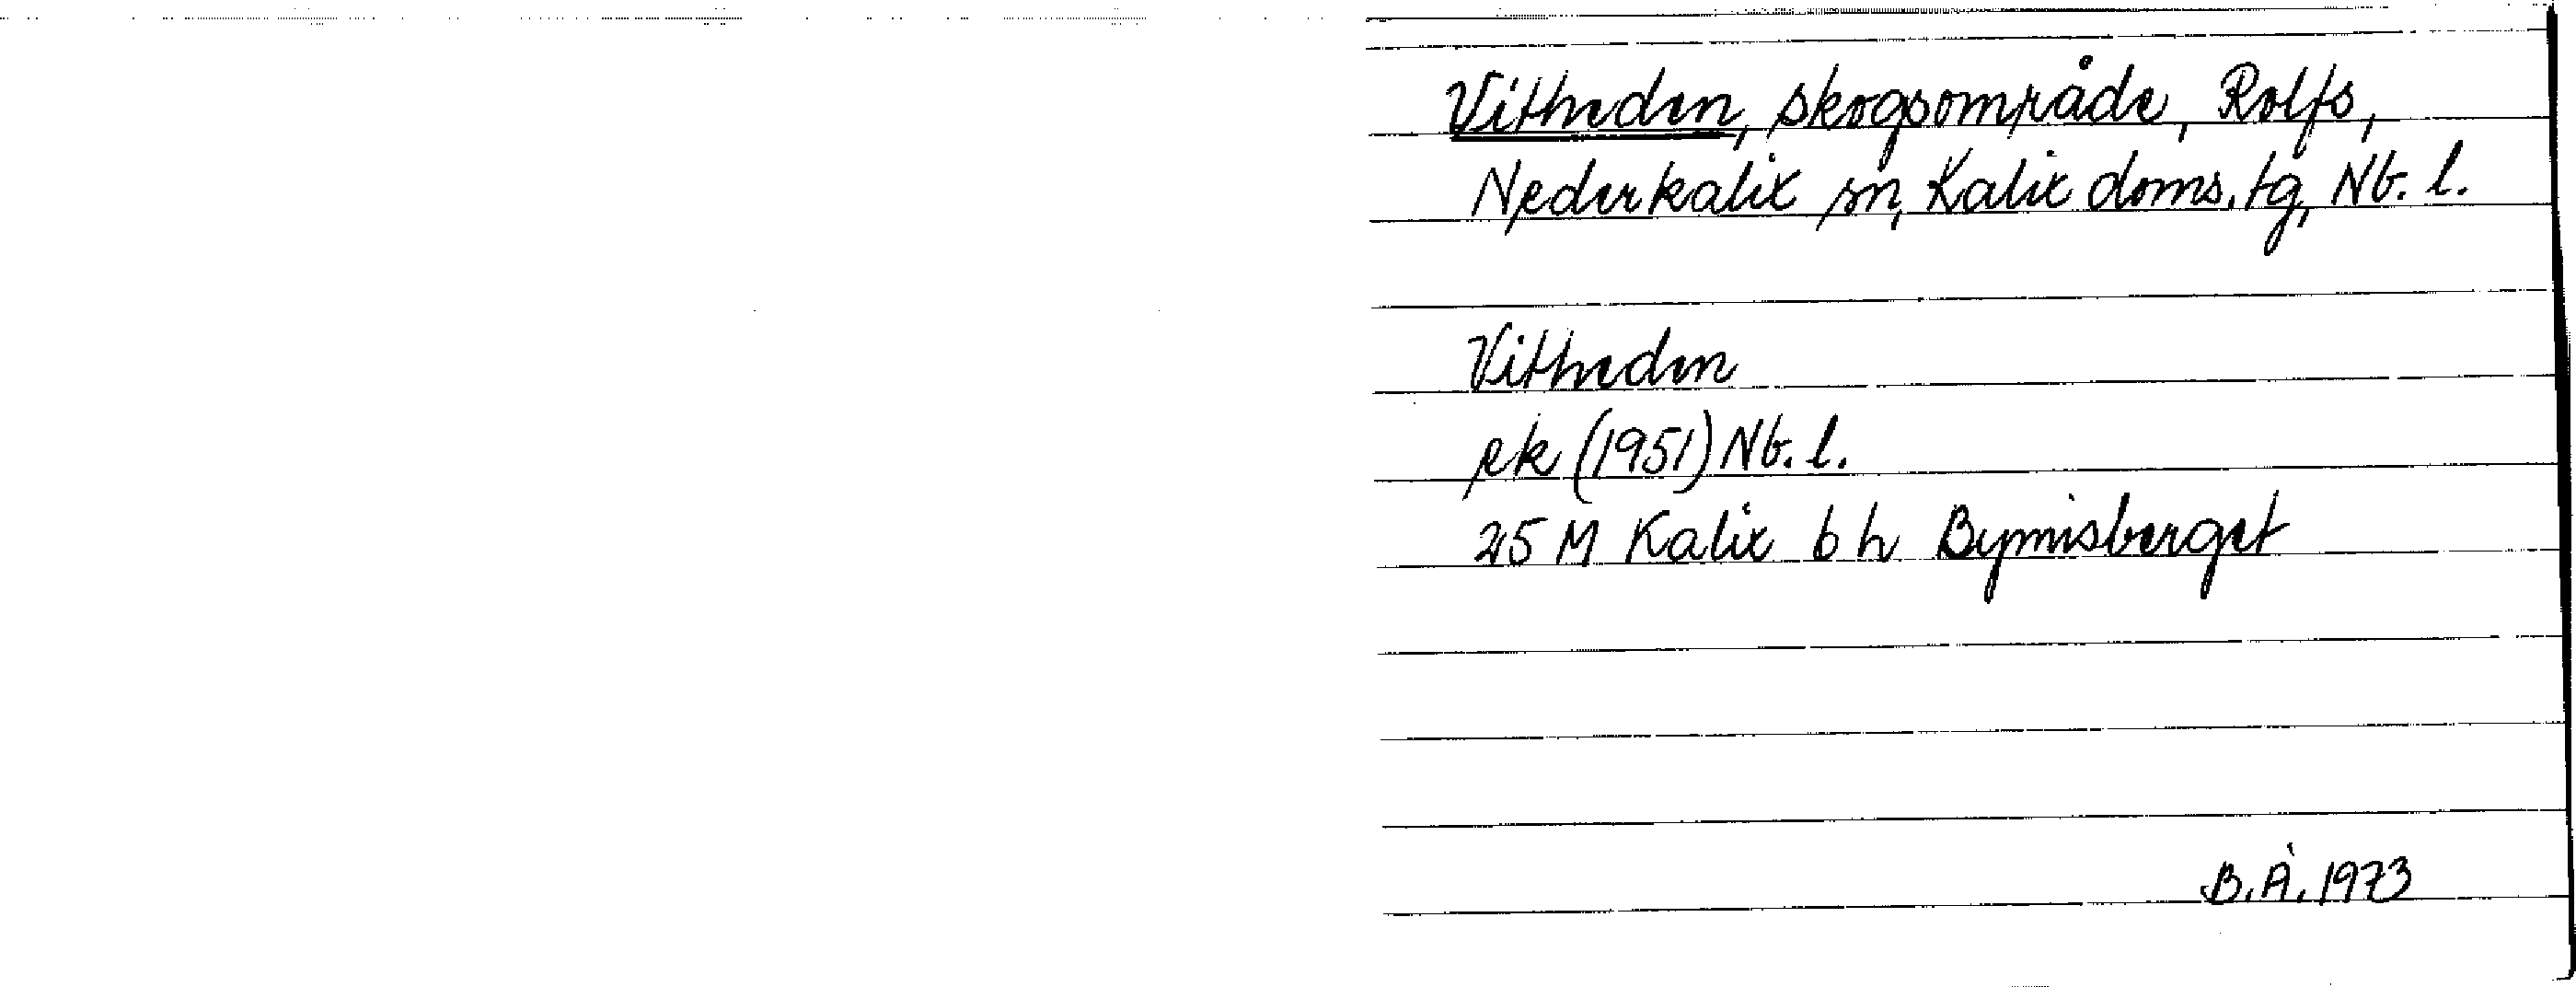 Vitheden, skogsområde, Rolfs,
Nederkalix sn, Kalix doms. tg, Nb. l.
Vitheden
ek (1951) Nb. l.
25 M Kalix b h Bymisberget
B.Å. 1973